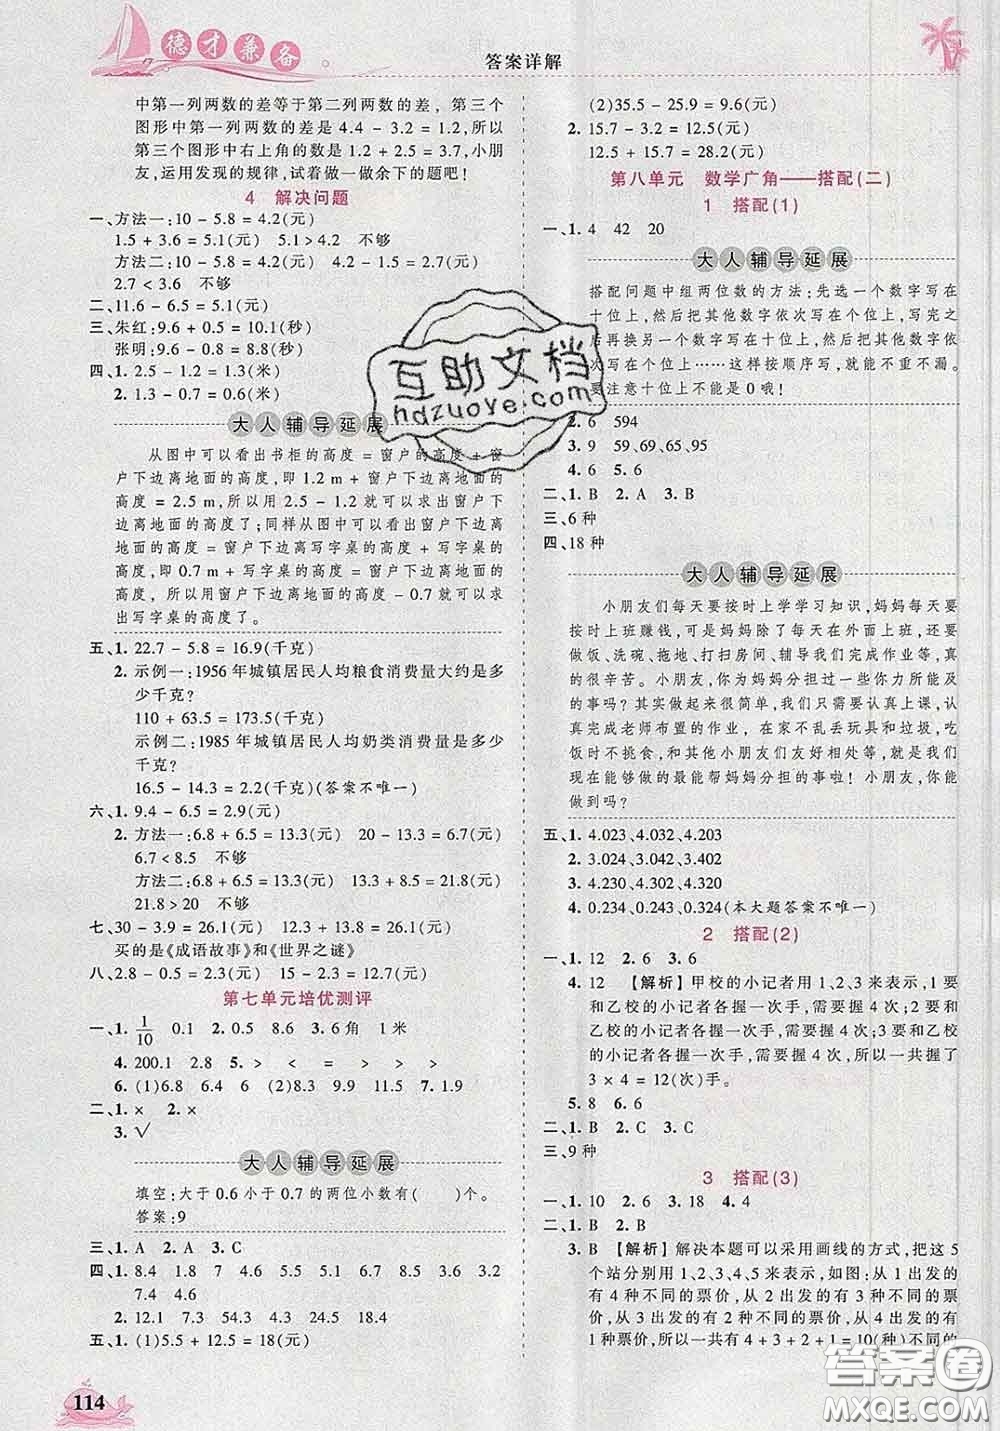 德才兼备
答案详解
中第一列两数的差等于第二列两数的差，第三个
图形中第一列两数的差是 4.4 - 3.2 = 1.2,所以
第三个图形中右上角的数是 1.2 + 2.5 = 3.7,小朋
友,运用发现的规律,试着做一做余下的题吧!
4 解决问题
一、方法一:10 - 5.8 = 4.2(元)
1.5 + 3.6 = 5.1(元) 5.1 > 4.2 不够
方法二:10 - 5.8 = 4.2(元) 4.2 - 1.5 = 2.7(元)
2.7 < 3.6 不够
二、11.6 - 6.5 = 5.1(元)
三、朱红:9.6 + 0.5 = 10.1(秒)
张明:9.6 - 0.8 = 8.8(秒)
四、1. 2.5 - 1.2 = 1.3(米)
2. 1.3 - 0.7 = 0.6(米)
大人辅导延展
从图中可以看出书柜的高度 = 窗户的高度 + 窗
户下边离地面的高度,即 1.2 m + 窗户下边离地面的
高度 = 2.5 m,所以用 2.5 - 1.2 就可以求出窗户下
边离地面的高度了;同样从图中可以看出窗户下边
离地面的高度 = 窗户下边离写字桌的高度 + 写字桌
的高度,即 0.7 m + 写字桌的高度 = 窗户下边离地面
高度，所以用窗户下边离地面的高度 - 0.7 就可以求
出写字桌的高度了。
五、1. 22.7 - 5.8 = 16.9(千克)
2. 示例一:1956 年城镇居民人均粮食消费量大约是多
少千克?
110 + 63.5 = 173.5(千克)
示例二:1985 年城镇居民人均奶类消费量是多少
千克?
16.5 - 14.3 = 2.2(千克)(答案不唯一)
六、1. 9.4 - 6.5 = 2.9(元)
2. 方法一:6.8 + 6.5 = 13.3(元) 20 - 13.3 = 6.7(元)
6.7 < 8.5 不够
方法二:6.8 + 6.5 = 13.3(元) 13.3 + 8.5 = 21.8(元)
21.8 > 20 不够
七、30 - 3.9 = 26.1(元) 12.8 + 13.3 = 26.1(元)
买的是《成语故事》和《世界之谜》
八、2.8 - 0.5 = 2.3(元) 15 - 2.3 = 12.7(元)
第七单元培优测评
一、1. 1/10 0.1 2. 0.5 8.6 3. 6 角 1 米
4. 200.1 2.8 5. > < = > >
6. (1)6.8 4.4 6 (2)8.3 9.5 7. 1.9
二、1. × 2. ×
3. √
大人辅导延展
填空:大于 0.6 小于 0.7 的两位小数有( )个。
答案:9
三、1. A 2. A 3. C
四、1. 8.4 1.8 7 4.6 5.5 5.1 6.8 3.6 3.2
7.4 4.6
2. 12.1 7.3 54.3 4.3 24.5 2.8
五、1. (1)5.5 + 12.5 = 18(元)
114
(2)35.5 - 25.9 = 9.6(元)
2. 15.7 - 3.2 = 12.5(元)
12.5 + 15.7 = 28.2(元)
第八单元 数学广角——搭配(二)
1 搭配(1)
一、1. 4 42 20
大人辅导延展
搭配问题中组两位数的方法:先选一个数字写在
十位上,然后把其他数字依次写在个位上,写完之
后再换另一个数字写在十位上,然后把其他数字依
次写在个位上……这样按顺序写,就能不重不漏。
要注意十位上不能是 0 哦!
2. 6 594
3. 9 59、69、65、95
4. 6 5. 6
二、1. B 2. A 3. B
三、6 种
四、18 种
大人辅导延展
小朋友们每天要按时上学学习知识,妈妈每天要
按时上班赚钱,可是妈妈除了每天在外面上班,还要
做饭、洗碗、拖地、打扫房间、辅导我们完成作业等,真
的很辛苦。小朋友,你要为妈妈分担一些你力所能及
的事吗?其实做起来很简单,我们只需要认真上课,认
真完成老师布置的作业,在家不乱丢玩具和垃圾,吃
饭时不挑食,和其他小朋友们友好相处等,就是我们
能够做的最能帮妈妈分担的事啦!小朋友,你能
做到吗?
五、1. 4.023、4.032、4.203
2. 3.024、3.042、3.402
3. 4.230、4.302、4.320
4. 0.234、0.243、0.324(本大题答案不唯一)
2 搭配(2)
一、1. 12 2. 6 3. 6
4. 12 【解析】甲校的小记者用 1、2、3 来表示,1 要
和乙校的小记者各握一次手,需要握 4 次;2 要和
乙校的小记者各握一次手,需要握 4 次;3 要和乙
校的小记者各握一次手,需要握 4 次,所以一共握了
3 × 4 = 12(次)手。
5. 8 6. 6
二、1. B 2. C 3. C
三、9 种
3 搭配(3)
一、1. 10 2. 6 3. 18 4. 4
二、1. B 2. B
3. B 【解析】解决本题可以采用画线的方式,把这 5
个站分别用 1、2、3、4、5 来表示,如图:从 1 出发的
有 4 种不同的票价,从 2 出发的有 3 种不同的票
价,从 3 出发的有 2 种不同的票价,从 4 出发的有
1 种票价,所以一共有 4 + 3 + 2 + 1 = 10(种)不同的
互助文档
hdzuoye.com
答案圈
MXQE.COM